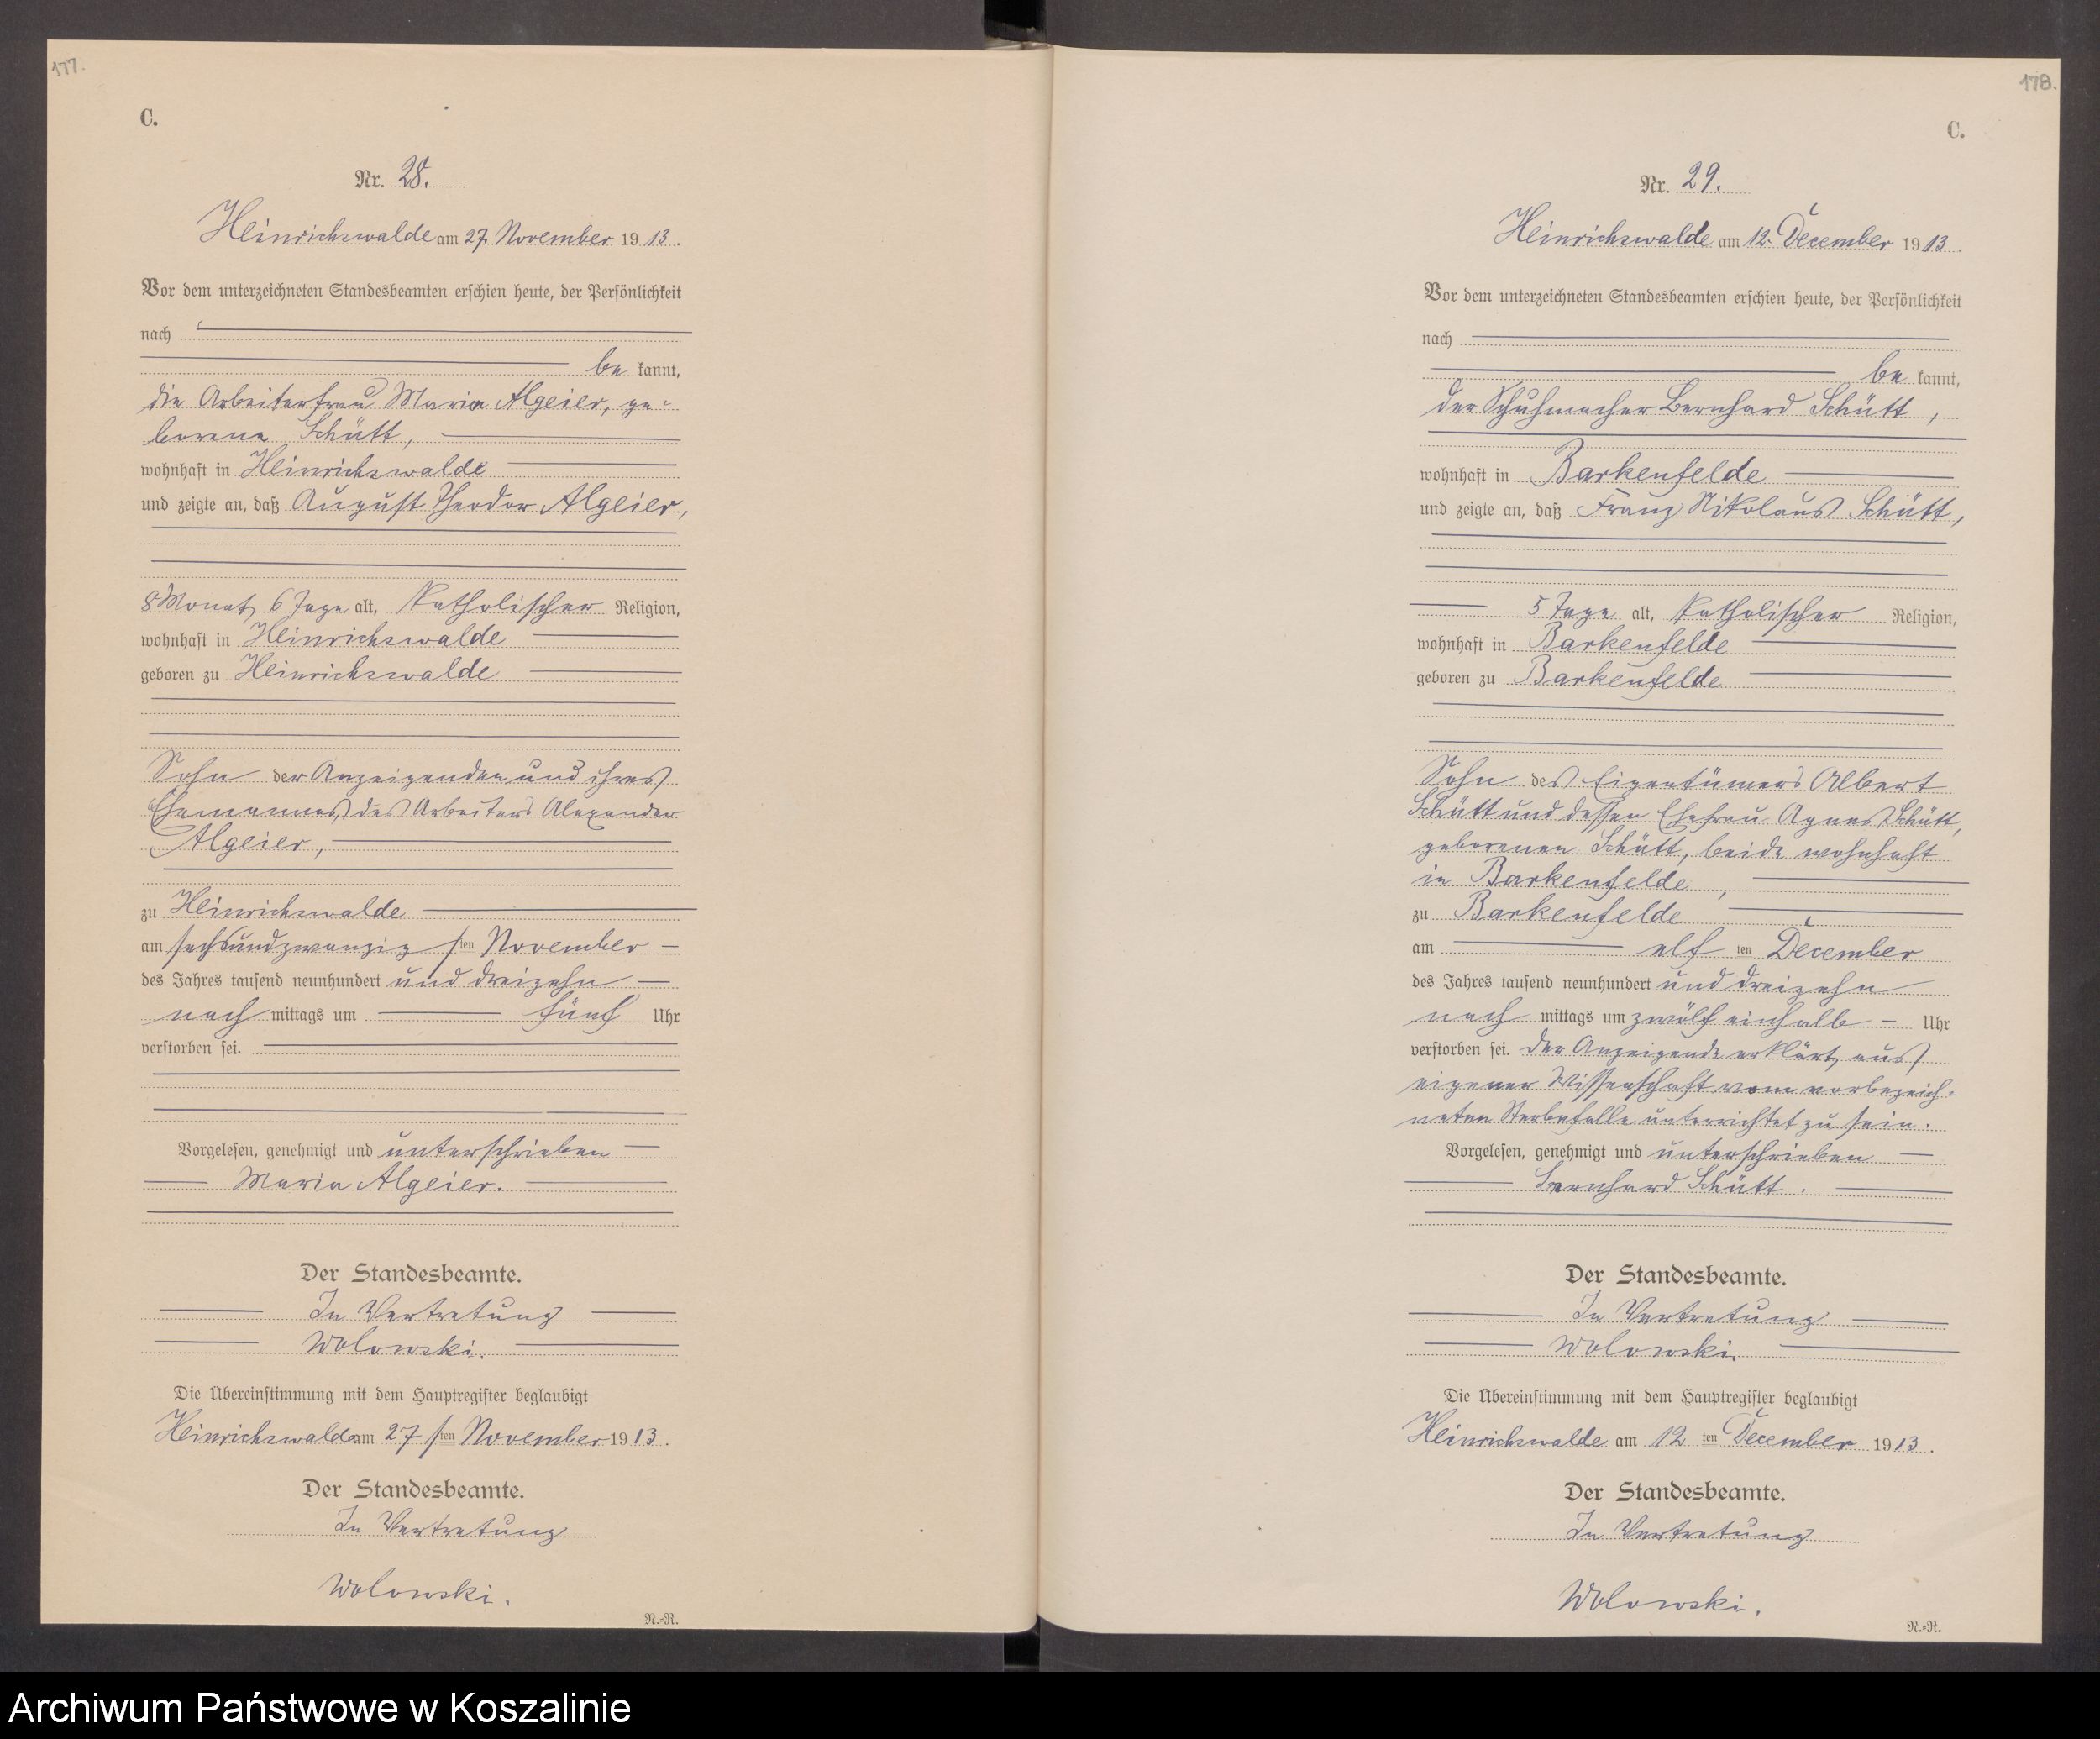 177.
C.
Nr. 28.
Heinrichswalde am 27. November 1913.
Vor dem unterzeichneten Standesbeamten erschien heute, der Persönlichkeit
nach
be kannt,
die Arbeiterfrau Maria Algeier, ge-
borene Schütt,
wohnhaft in Heinrichswalde
und zeigte an, daß August Theodor Algeier,
8 Monat, 6 Tage alt, katholischer Religion,
wohnhaft in Heinrichswalde
geboren zu Heinrichswalde
Sohn der Anzeigenden und ihres
Ehemannes, des Arbeiters Alexander
Algeier,
zu Heinrichswalde
am sechsundzwanzigsten November
des Jahres tausend neunhundert und dreizehn
nach mittags um fünf Uhr
verstorben sei.
Vorgelesen, genehmigt und unterschrieben
Maria Algeier.
Der Standesbeamte.
In Vertretung
Wolowski.
Die Übereinstimmung mit dem Hauptregister beglaubigt
Heinrichswalde am 27 sten November 1913.
Der Standesbeamte.
In Vertretung
Wolowski.
N.-R.
178.
C.
Nr. 29.
Heinrichswalde am 12. December 1913.
Vor dem unterzeichneten Standesbeamten erschien heute, der Persönlichkeit
nach
be kannt,
der Schuhmacher Bernhard Schütt,
wohnhaft in Barkenfelde
und zeigte an, daß Franz Nikolaus Schütt,
5 Tage alt, katholischer Religion,
wohnhaft in Barkenfelde
geboren zu Barkenfelde
Sohn des Eigentümers Albert
Schütt und dessen Ehefrau Agnes Schütt,
geborenen Schütt, beide wohnhaft
in Barkenfelde,
zu Barkenfelde
am elf ten December
des Jahres tausend neunhundert und dreizehn
nach mittags um zwölf einhalb Uhr
verstorben sei. Der Anzeigende erklärt, aus
eigener Wissenschaft vom vorbezeich-
neten Sterbefalle unterrichtet zu sein.
Vorgelesen, genehmigt und unterschrieben
Bernhard Schütt.
Der Standesbeamte.
In Vertretung
Wolowski.
Die Übereinstimmung mit dem Hauptregister beglaubigt
Heinrichswalde am 12 ten December 1913.
Der Standesbeamte.
In Vertretung
Wolowski.
N.-R.
Archiwum Państwowe w Koszalinie